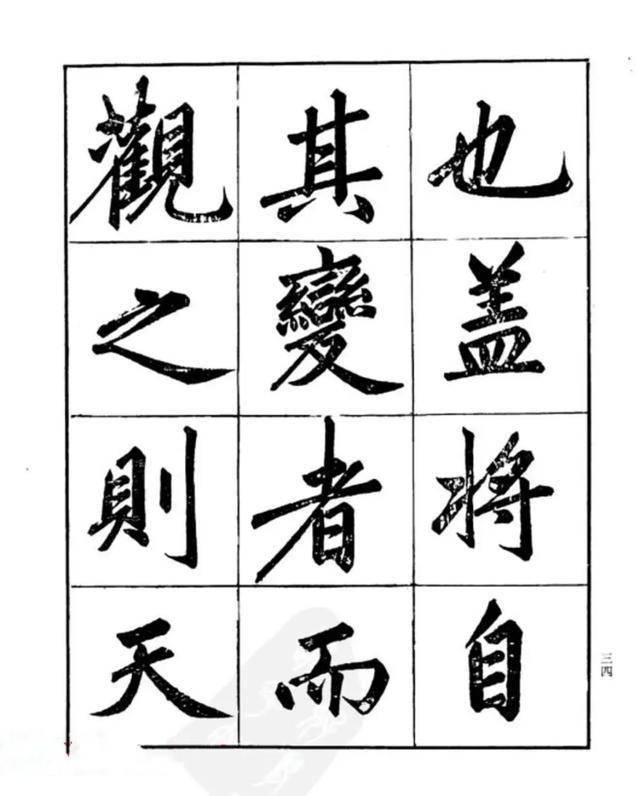 也盖将自
其變者而
觀之則天
三四